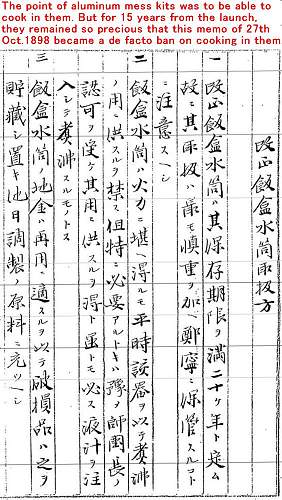 The point of aluminum mess kits was to be able to
cook in them. But for 15 years from the launch,
they remained so precious that this memo of 27th
Oct.1898 became a de facto ban on cooking in them
改正飯盒水筒取扱方
一 改正飯盒水筒ハ其保存期限ヲ満二十ケ年ト定ム
故ニ其取扱ハ最モ慎重ヲ加ヘ鄭寧ニ保管スルコト
ニ注意スヘシ
二 飯盒水筒ハ火力ニ堪ヘ得ルモ平時該器ヲ以テ煮沸
ノ用ニ供スルヲ禁ス但特ニ必要アルトキハ豫シメ師團長ノ
認可ヲ受ケ其用ニ供スルヲ得ト雖トモ必ス液汁ヲ注
入シテ煮沸スルモノトス
三 飯盒水筒ノ地金ハ再用ニ適スルヲ以テ破損品ハ之ヲ
貯藏シ置キ他日調製ノ原料ニ充ツヘシ